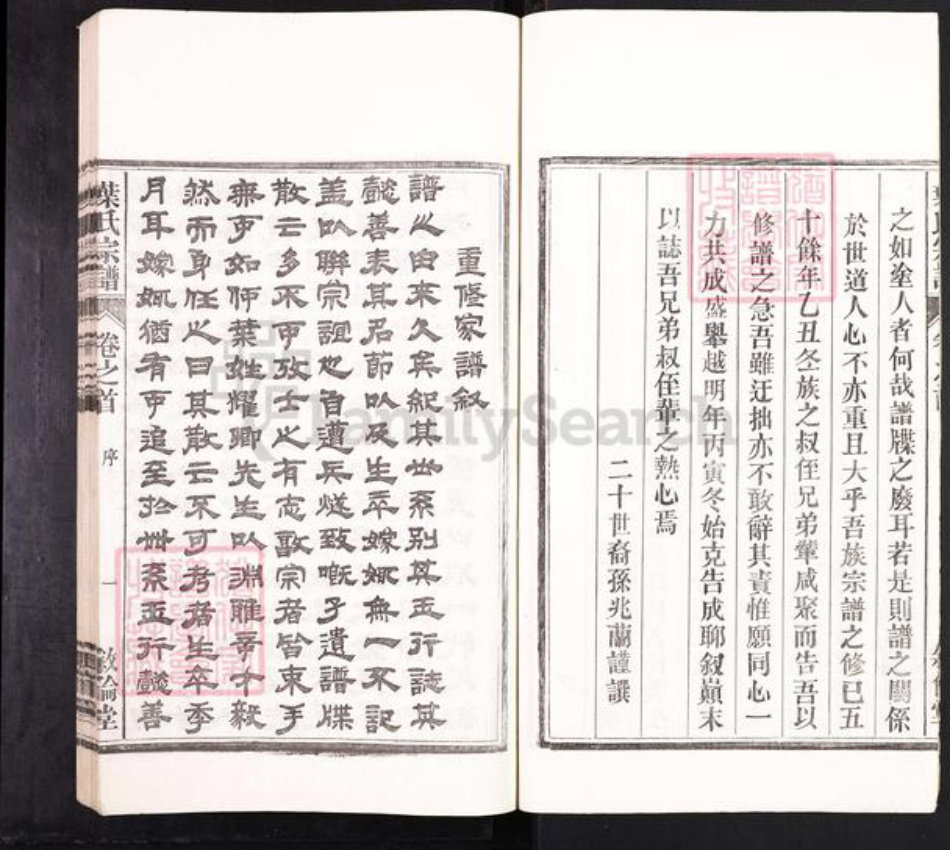 之如塗人者何哉譜牒之廢耳若是則譜之關係
於世道人心不亦重且大乎吾族宗譜之修已五
十餘年乙丑冬族之叔侄兄弟輩咸聚而告吾以
修譜之急吾雖迂拙亦不敢辭其責惟願同心一
力共成盛舉越明年丙寅冬始克告成聊叙巔末
以誌吾兄弟叔侄輩之熱心焉
二十世裔孫兆蘭謹譔
重修家譜叙
譜之由來久矣紀其世系別其五行誌其
懿善表其名節以及生卒嫁娵無一不記
盖以聯宗誼也自遭兵燧致嘅孑遺譜牒
散亡多不可攷士之有志敬宗者皆束手
無可如何葉姓耀卿先生以淵雅
然而身任之曰其散亡不可考者生卒季
月耳嫁娵猶有可追至於世系五行懿善
葉氏宗譜
卷之首
序
一
敘倫堂
FamilySearch